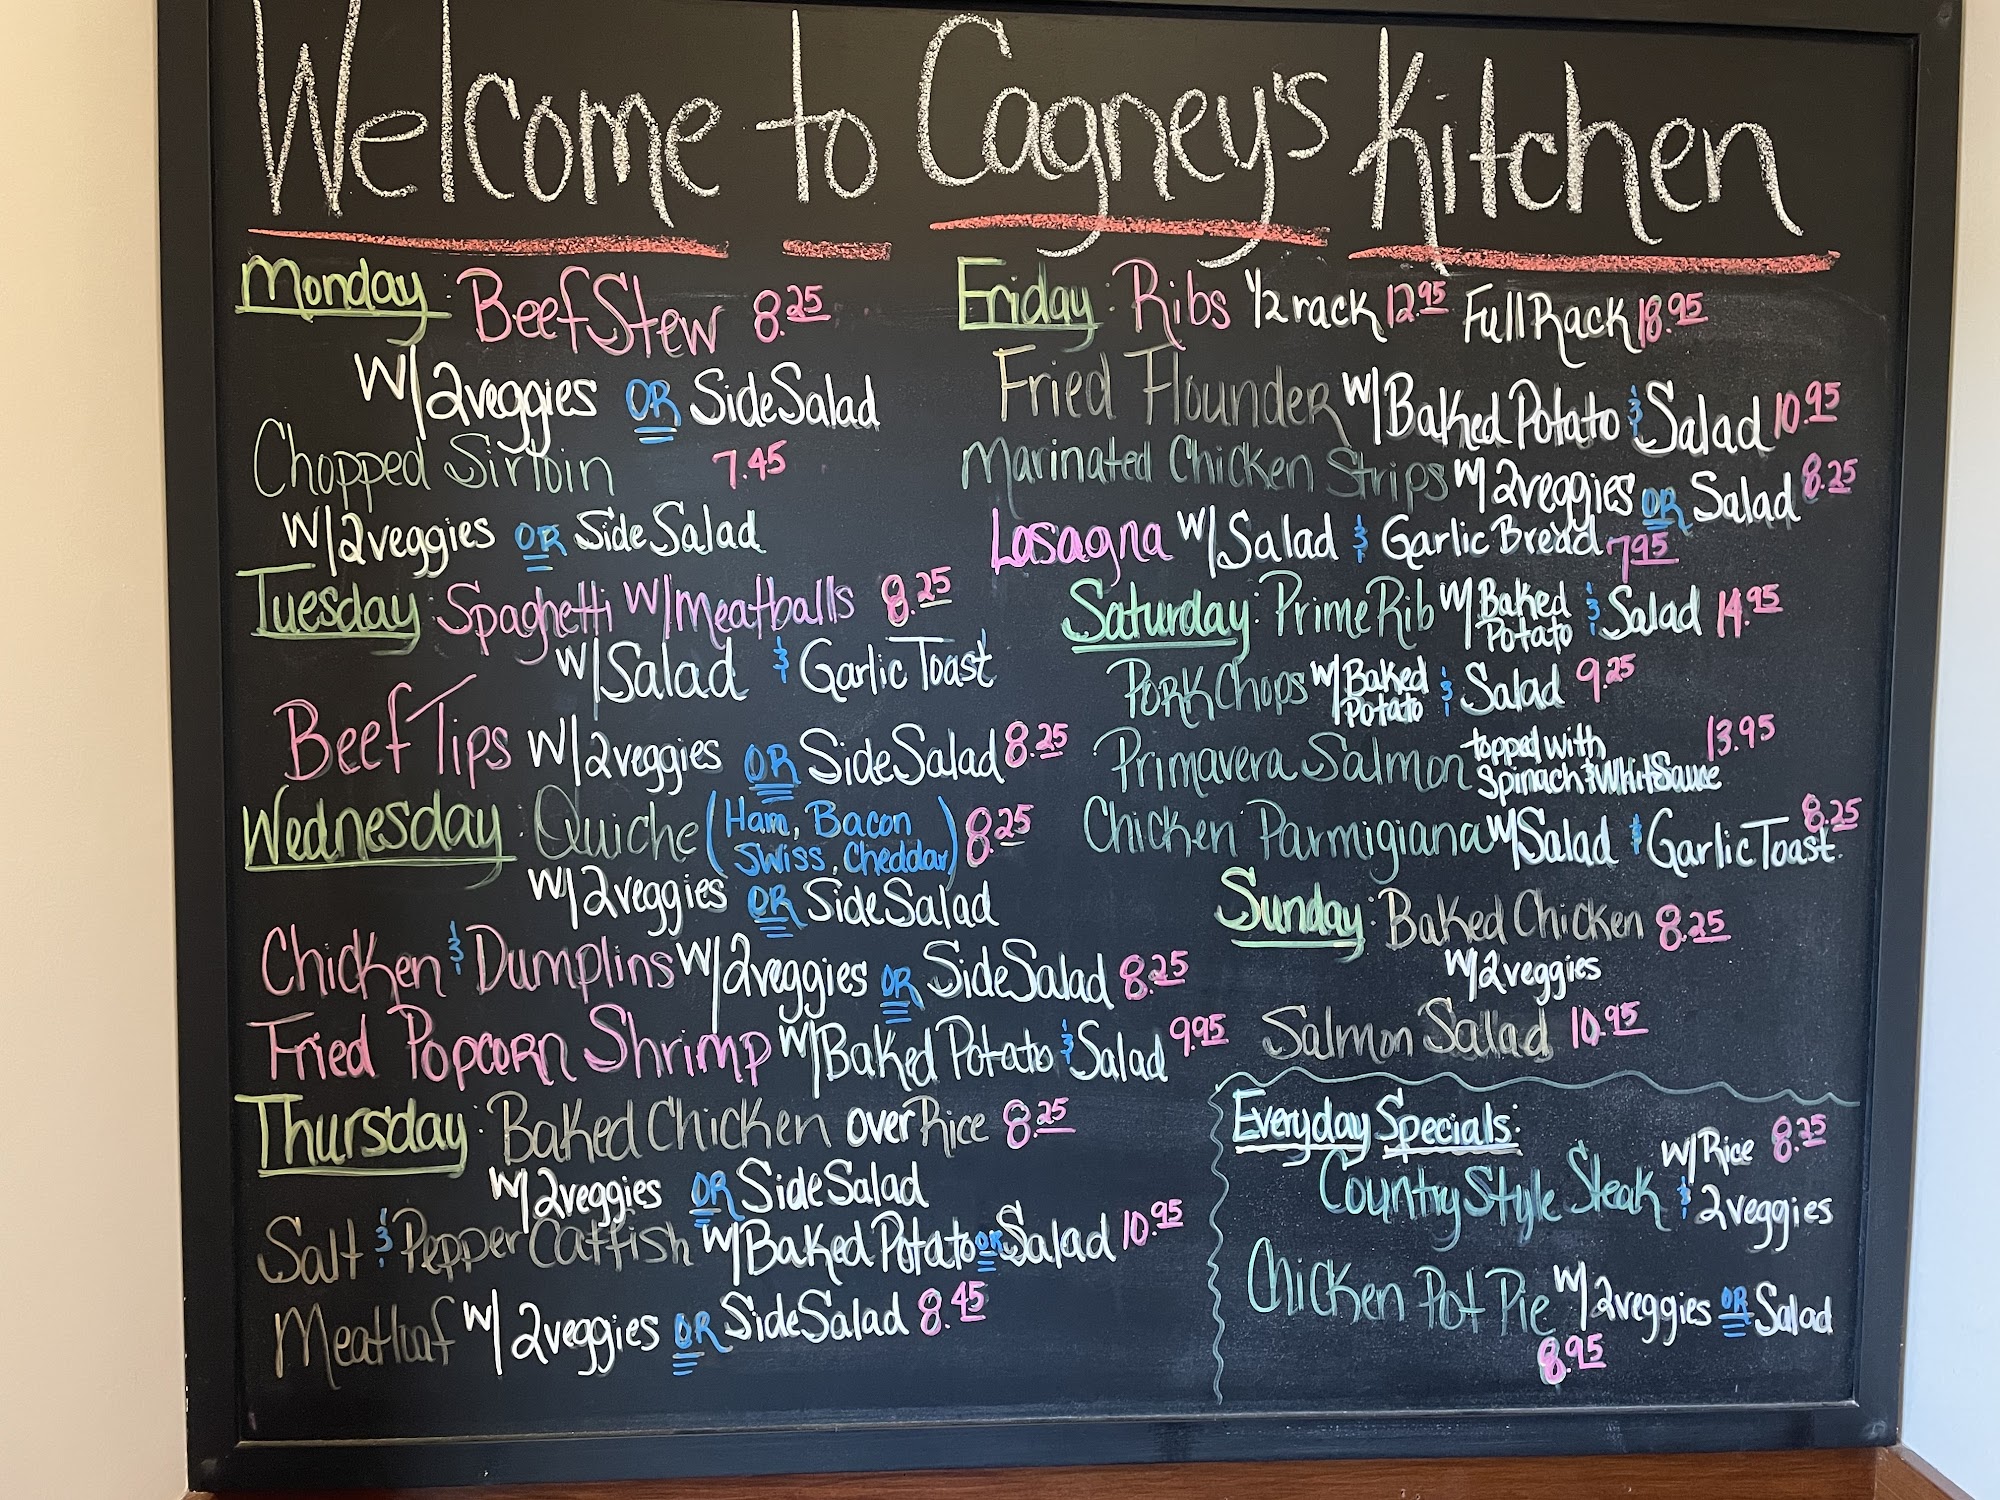 Welcome to Cagney's Kitchen
Monday: Beef Stew 8.25
W/2veggies OR Side Salad
Chopped Sirloin 7.45
W/2veggies OR Side Salad
Tuesday: Spaghetti W/Meatballs 8.25
W/Salad & Garlic Toast
Beef Tips W/2veggies OR Side Salad 8.25
Wednesday: Quiche (Ham, Bacon 8.25
Swiss, Cheddar)
W/2veggies OR Side Salad
Chicken & Dumplins W/2veggies OR Side Salad 8.25
Fried Popcorn Shrimp W/Baked Potato & Salad 9.95
Thursday: Baked Chicken over Rice 8.25
W/2veggies OR Side Salad
Salt & Pepper Catfish W/Baked Potato OR Salad 10.95
Meatloaf W/2veggies OR Side Salad 8.45
Friday: Ribs 1/2 rack 12.95 Full Rack 18.95
Fried Flounder W/Baked Potato & Salad 10.95
Marinated Chicken Strips W/2veggies OR Salad 8.25
Lasagna W/Salad & Garlic Bread 7.95
Saturday: Prime Rib W/Baked Potato & Salad 14.95
Pork Chops W/Baked Potato & Salad 9.25
Primavera Salmon topped with 13.95
Spinach & Whit Sauce
Chicken Parmigiana W/Salad & Garlic Toast 8.25
Sunday: Baked Chicken 8.25
W/2veggies
Salmon Sallad 10.95
Everyday Specials:
Country Style Steak W/Rice 8.25
& 2veggies
Chicken Pot Pie W/2veggies OR Salad
8.95